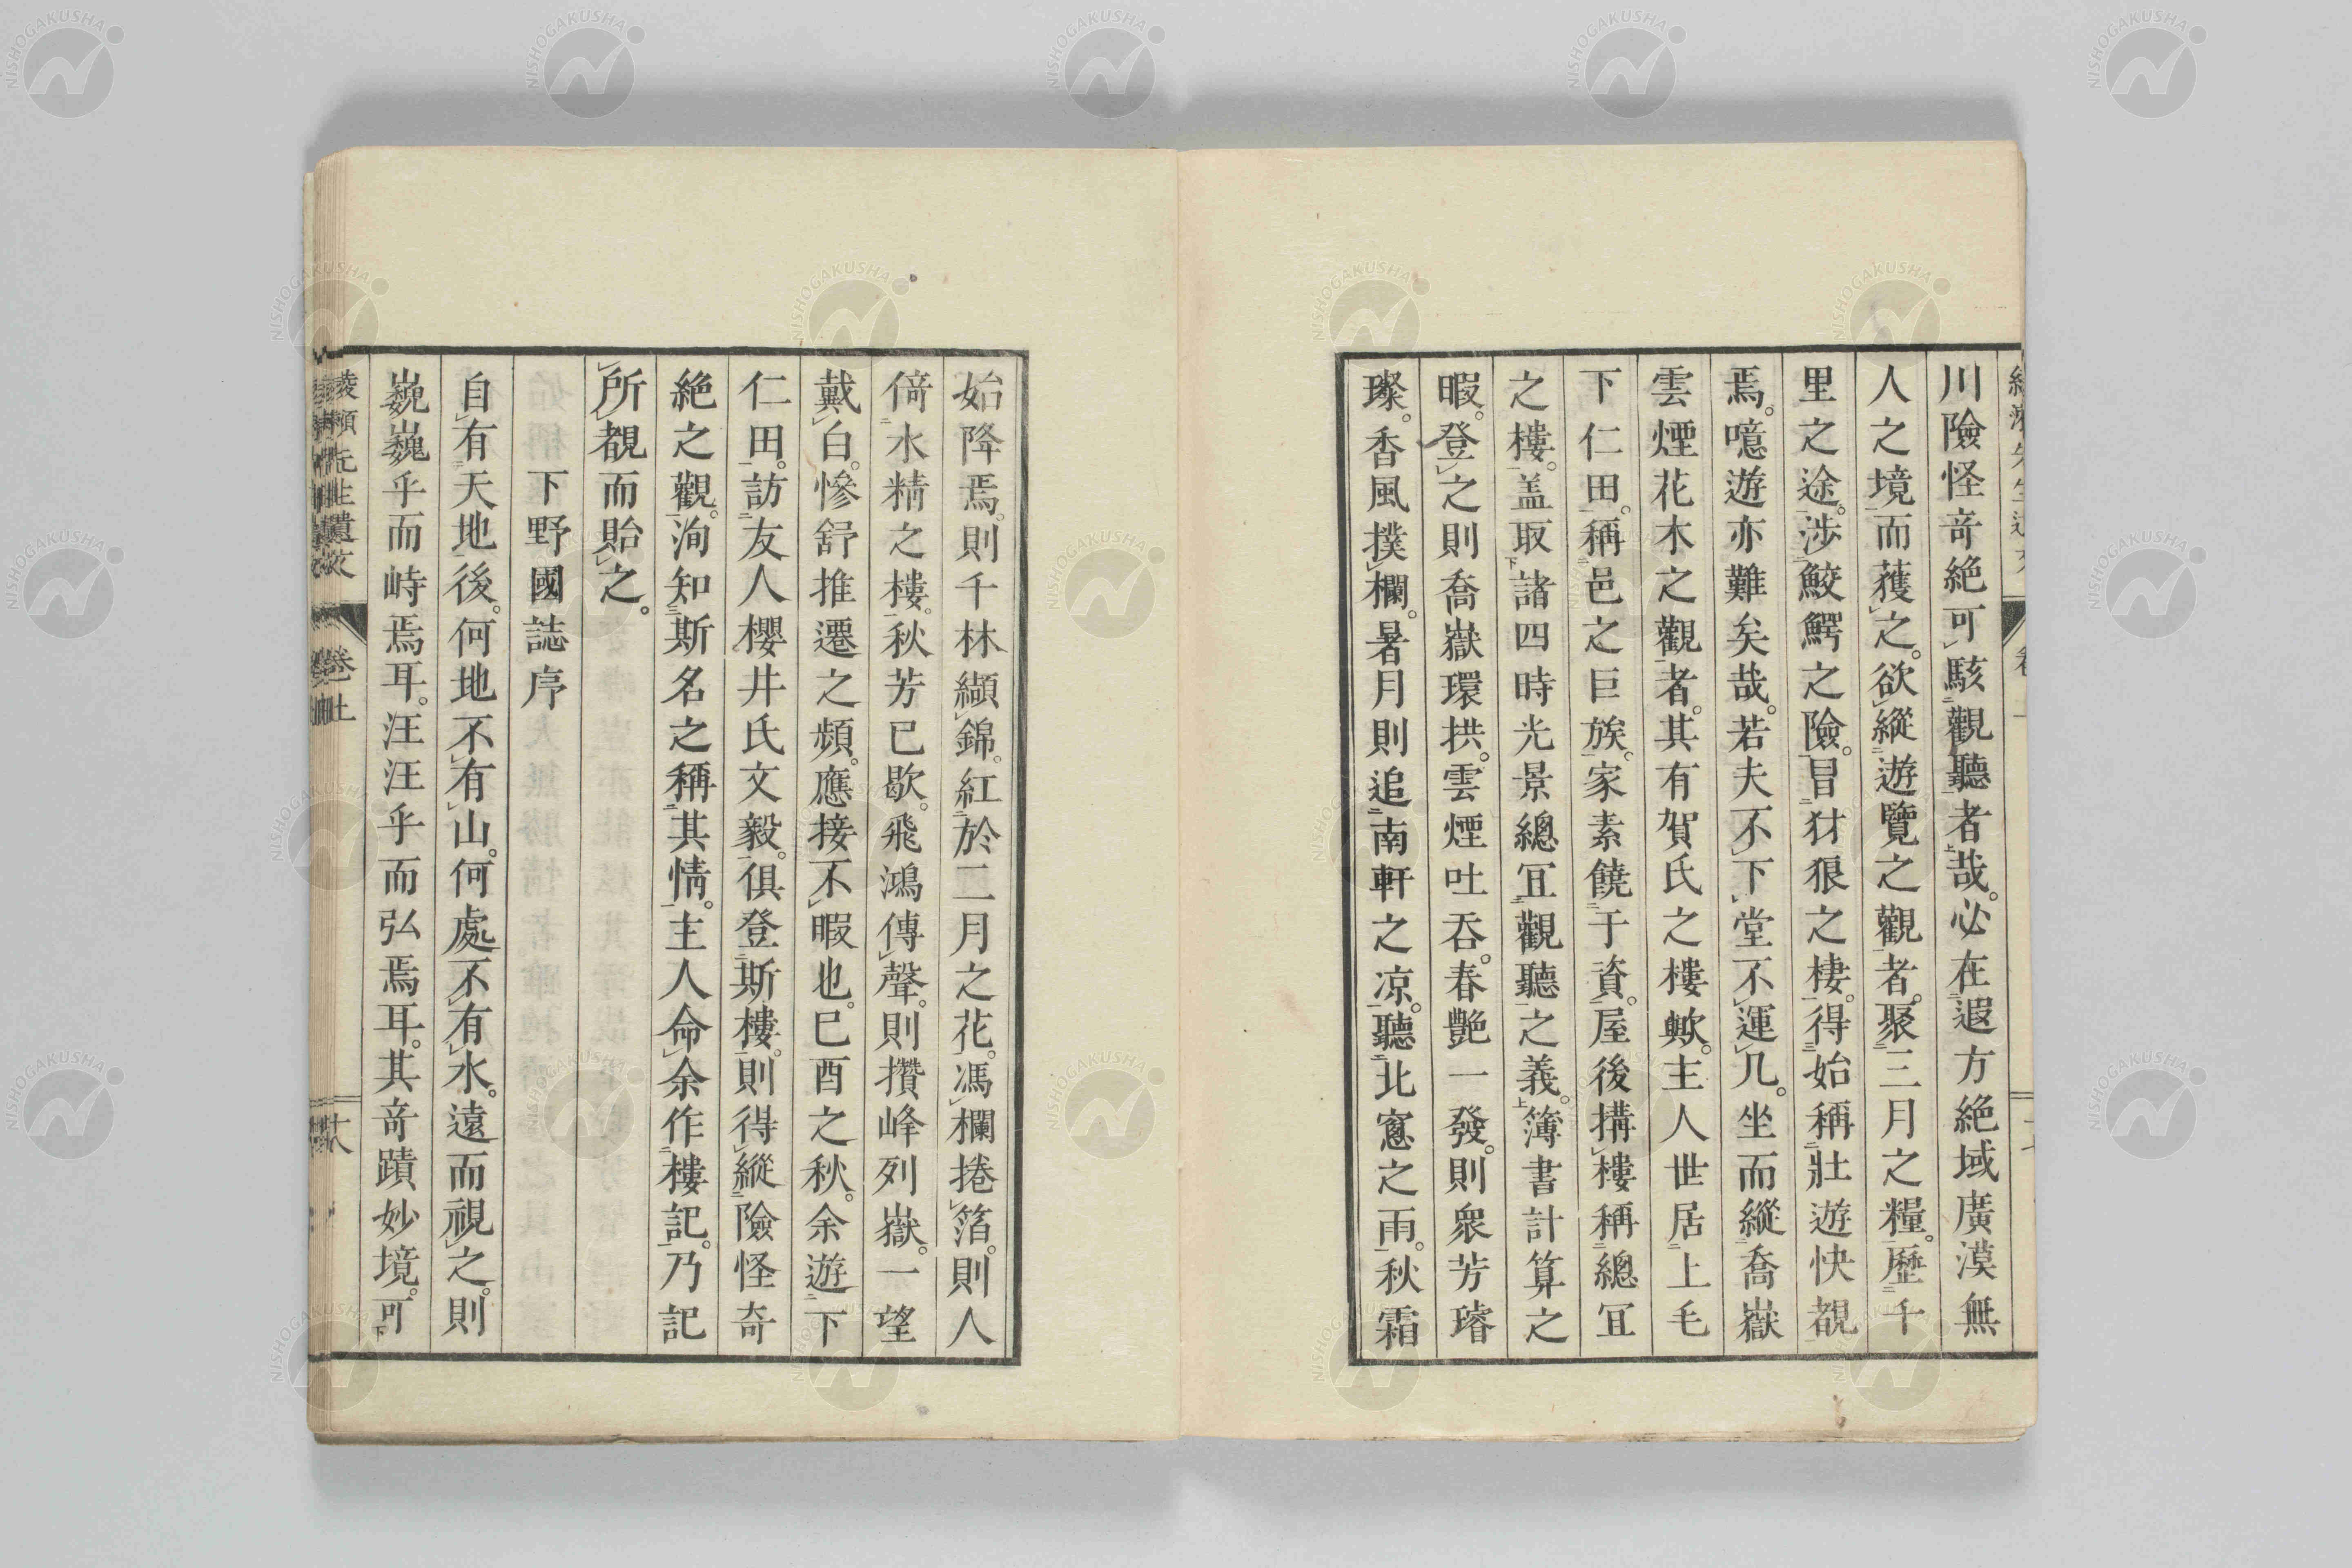 川險怪奇絶可駭觀聽者哉。必在遐方絶域廣漠無
人之境而獲之。欲縱遊覽之觀者。聚三月之糧。歷千
里之途。涉鮫鰐之險。冒豺狼之棲。得始稱壯遊快覩
焉。噫遊亦難矣哉。若夫不下堂不運几。坐而縱喬嶽
雲煙花木之觀者。其有賀氏之樓歟。主人世居上毛
下仁田。稱邑之巨族。家素饒于資。屋後搆樓稱總宜
之樓。盖取諸四時光景總宜觀聽之義。簿書計算之
暇。登之則喬嶽環拱。雲煙吐呑。春艶一發。則衆芳璿
璨。香風撲欄。暑月則追南軒之凉。聽北窻之雨。秋霜
始降焉。則千林纈錦。紅於二月之花。馮欄捲箔。則人
倚水精之樓。秋芳已歇。飛鴻傳聲。則攢峰列嶽。一望
戴白。慘舒推遷之頻。應接不暇也。巳酉之秋。余遊下
仁田。訪友人櫻井氏文毅。俱登斯樓。則得縱險怪奇
絶之觀。洵知斯名之稱其情。主人命余作樓記。乃記
所覩而貽之。
下野國誌序
自有天地後。何地不有山。何處不有水。遠而視之。則
巍巍乎而峙焉耳。汪汪乎而弘焉耳。其奇蹟妙境。可
綾瀬先生遺文 卷上 十八